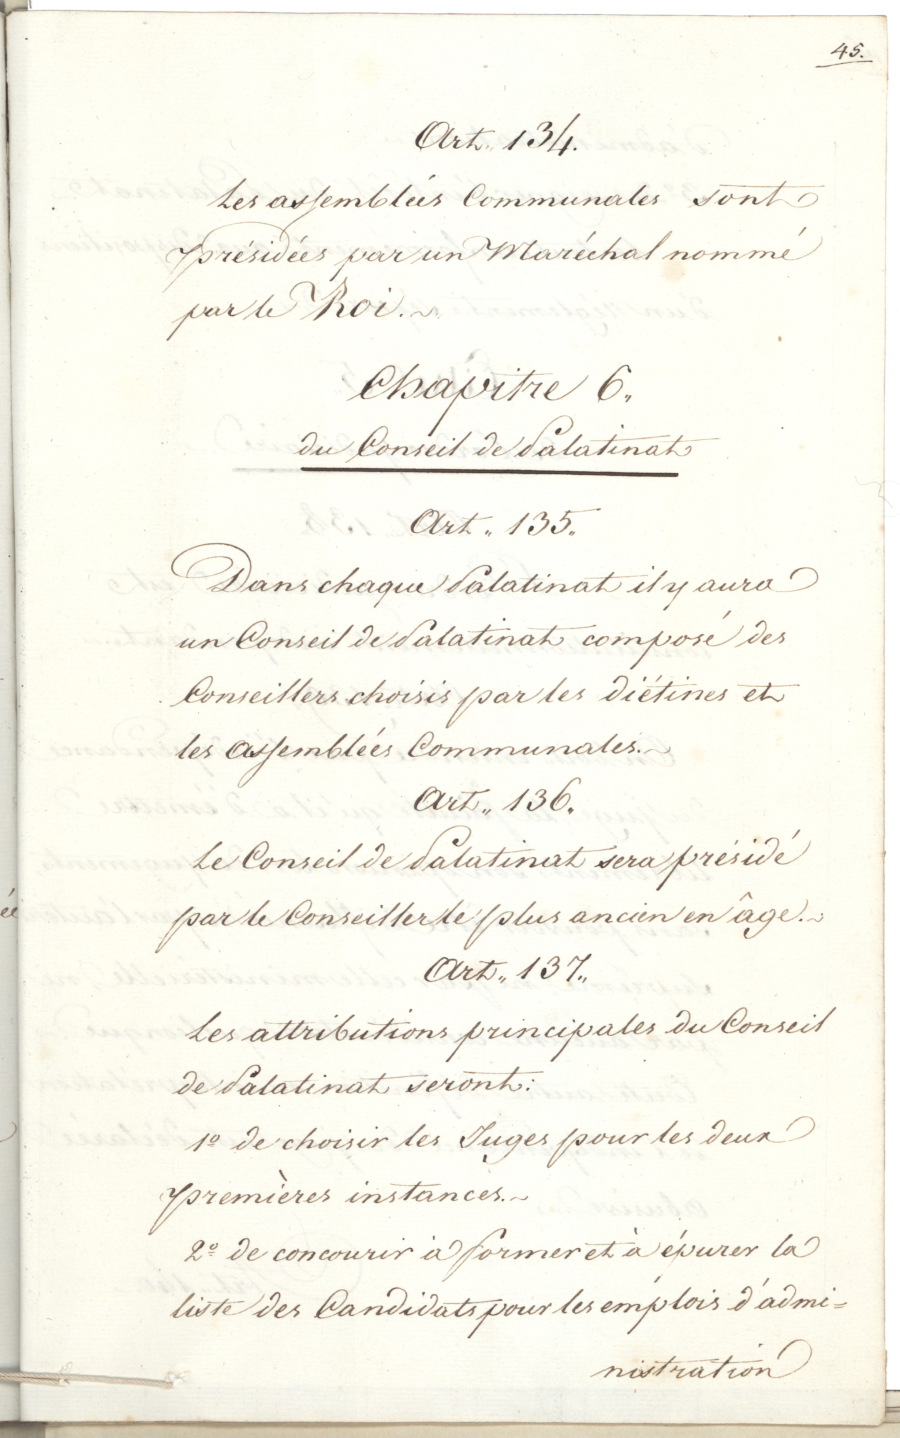 45.
Art. 134.
Les assemblées Communales sont
présidées par un Maréchal nommé
par le Roi.~
Chapitre 6.
du Conseil de Palatinat
Art. 135.
Dans chaque Palatinat il y aura
un Conseil de Palatinat composé des
Conseillers choisis par les diétines et
les assemblées Communales.~
Art. 136.
Le Conseil de Palatinat sera présidé
par le Conseiller le plus ancien en âge.~
Art. 137.
Les attributions principales du Conseil
de Palatinat seront:
1º de choisir les Juges pour les deux
premières instances.~
2º de concourir à former et à épurer la
liste des Candidats pour les emplois d'admi=
nistration